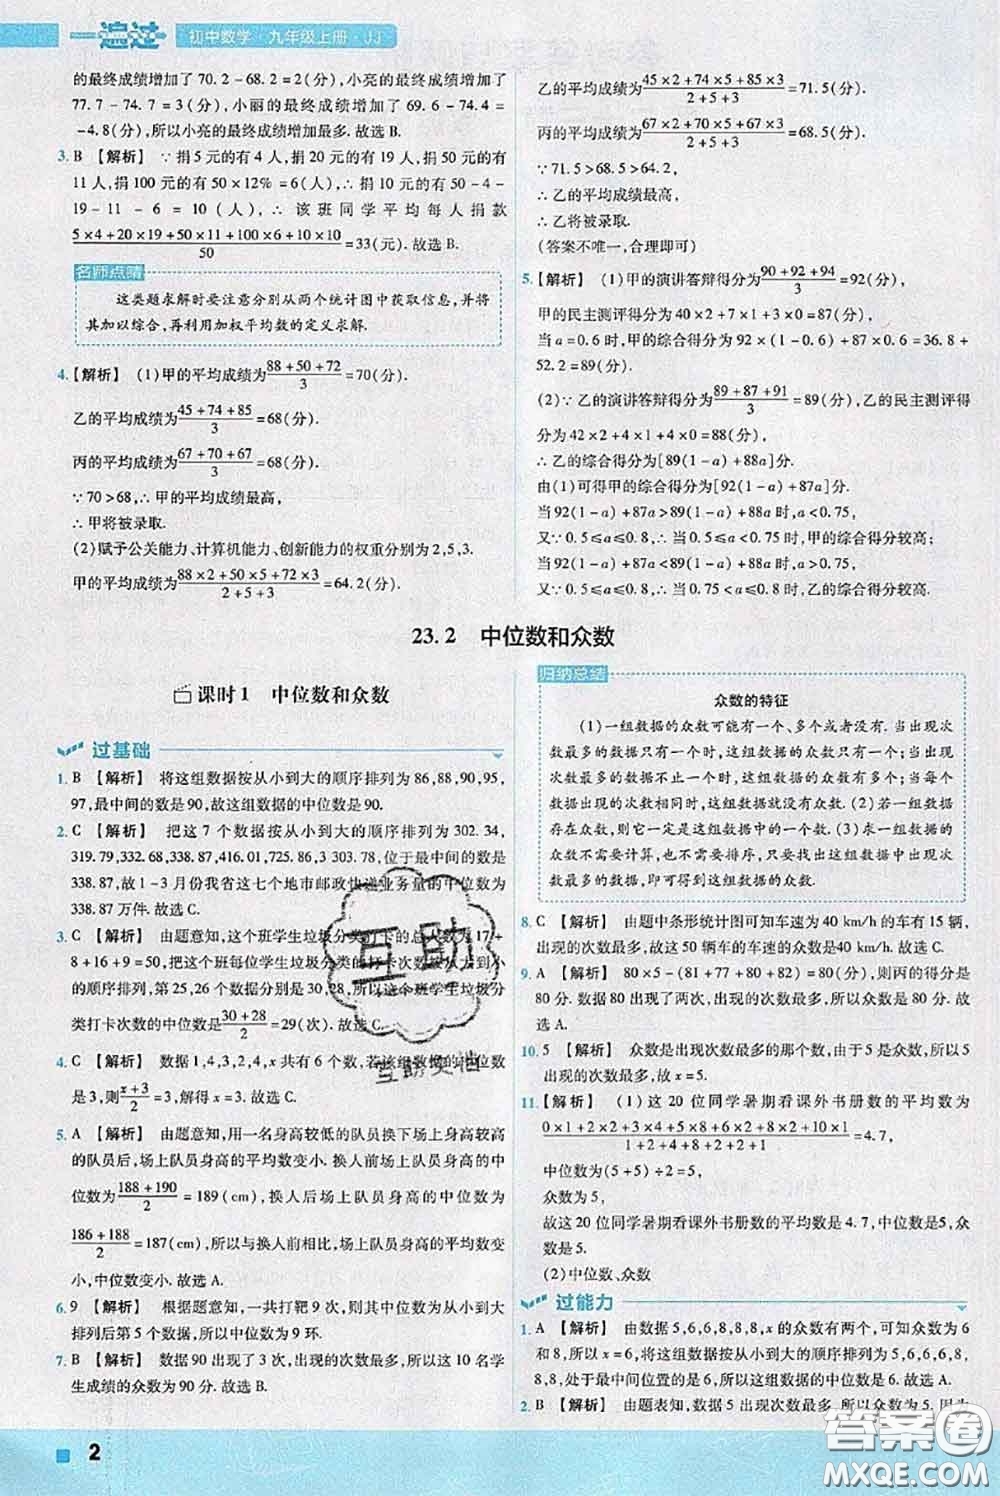 一遍过 初中数学·九年级上册·JJ
的最终成绩增加了 70.2-68.2=2(分),小亮的最终成绩增加了
77.7-74.7=3(分),小丽的最终成绩增加了 69.6-74.4=
-4.8(分),所以小亮的最终成绩增加最多.故选 B.
3. B 【解析】 ∵捐 5 元的有 4 人,捐 20 元的有 19 人,捐 50 元的有
11 人,捐 100 元的有 50×12%=6(人),∴捐 10 元的有 50-4-
19-11-6=10(人),∴该班同学平均每人捐款
(5×4+20×19+50×11+100×6+10×10)/50=33(元).故选 B.
名师点睛
这类题求解时要注意分别从两个统计图中获取信息,并将
其加以综合,再利用加权平均数的定义求解.
4. 【解析】 (1)甲的平均成绩为(88+50+72)/3=70(分),
乙的平均成绩为(45+74+85)/3=68(分),
丙的平均成绩为(67+70+67)/3=68(分).
∵70>68,∴甲的平均成绩最高,
∴甲将被录取.
(2)赋予公关能力、计算机能力、创新能力的权重分别为 2,5,3.
甲的平均成绩为(88×2+50×5+72×3)/(2+5+3)=64.2(分),
乙的平均成绩为(45×2+74×5+85×3)/(2+5+3)=71.5(分),
丙的平均成绩为(67×2+70×5+67×3)/(2+5+3)=68.5(分).
∵71.5>68.5>64.2,
∴乙的平均成绩最高,
∴乙将被录取.
(答案不唯一,合理即可)
5. 【解析】 (1)甲的演讲答辩得分为(90+92+94)/3=92(分),
甲的民主测评得分为 40×2+7×1+3×0=87(分),
当 a=0.6 时,甲的综合得分为 92×(1-0.6)+87×0.6=36.8+
52.2=89(分).
(2)∵乙的演讲答辩得分为(89+87+91)/3=89(分),乙的民主测评得
分为 42×2+4×1+4×0=88(分),
∴乙的综合得分为[89(1-a)+88a]分.
由(1)可得甲的综合得分为[92(1-a)+87a]分.
当 92(1-a)+87a>89(1-a)+88a 时,a<0.75,
又∵0.5≤a≤0.8,∴当 0.5≤a<0.75 时,甲的综合得分较高;
当 92(1-a)+87a<89(1-a)+88a 时,a>0.75,
又∵0.5≤a≤0.8,∴当 0.75<a≤0.8 时,乙的综合得分较高.
23.2 中位数和众数
课时 1 中位数和众数
过基础
1. B 【解析】 将这组数据按从小到大的顺序排列为 86,88,90,95,
97,最中间的数是 90,故这组数据的中位数是 90.
2. C 【解析】 把这 7 个数据按从小到大的顺序排列为 302.34,
319.79,332.68,338.87,416.01,725.86,3 303.78,位于最中间的数是
338.87,故 1-3 月份我省这七个地市邮政快递业务量的中位数为
338.87 万件.故选 C.
3. C 【解析】 由题意知,这个班学生垃圾分类打卡的总人数为 17+
8+16+9=50,把这个班每位学生垃圾分类的打卡次数从小到大排
列,第 25,26 个数据分别是 30,28,所以这个班学生垃圾
类打卡次数的中位数是(30+28)/2=29(次).故选 C.
4. C 【解析】 数据 1,4,3,2,4,x 共有 6 个数,若该组数据的中位数
是 3,则(x+3)/2=3,解得 x=3.故选 C.
5. A 【解析】 由题意知,用一名身高较低的队员换下场上身高较高
的队员后,场上队员身高的平均数变小.换人前场上队员身高的中
位数为(188+190)/2=189(cm),换人后场上队员身高的中位数为
(186+188)/2=187(cm),所以与换人前相比,场上队员身高的平均数变
小,中位数变小.故选 A.
6. 9 【解析】 根据题意知,一共打靶 9 次,则其中位数为从小到大
排列后第 5 个数据,所以中位数为 9 环.
7. B 【解析】 数据 90 出现了 3 次,出现的次数最多,所以这 10 名学
生成绩的众数为 90 分.故选 B.
归纳总结
众数的特征
(1)一组数据的众数可能有一个、多个或者没有.当出现次
数最多的数据只有一个时,这组数据的众数只有一个;当出现
次数最多的数据不止一个时,这组数据的众数有多个;当每个
数据出现的次数相同时,这组数据就没有众数.(2)若一组数据
存在众数,则它一定是这组数据中的一个数.(3)求一组数据的
众数不需要计算,也不需要排序,只要找出这组数据中出现次
数最多的数据,即可得到这组数据的众数.
8. C 【解析】 由题中条形统计图可知车速为 40 km/h 的车有 15 辆,
出现的次数最多,故这 50 辆车的车速的众数是40 km/h.故选 C.
9. A 【解析】 80×5-(81+77+80+82)=80(分),则丙的得分是
80 分.数据 80 出现了两次,出现的次数最多,所以众数是 80 分.故
选 A.
10. 5 【解析】 众数是出现次数最多的那个数,由于 5 是众数,所以 5
出现的次数最多,故 x=5.
11. 【解析】 (1)这 20 位同学暑期看课外书册数的平均数为
(0×1+1×2+2×4+5×6+6×3+8×2+10×1)/(1+2+4+6+3+2+2)=4.7,
中位数为(5+5)÷2=5,
众数为 5,
故这 20 位同学暑期看课外书册数的平均数是 4.7,中位数是5,众
数是 5.
(2)中位数、众数
过能力
1. A 【解析】 由数据 5,6,6,8,8,8,x 的众数有两个,可知众数为 6
和 8,所以 x=6,将这组数据按从小到大的顺序排列为 5,6,6,6,8,
8,8,处于最中间位置的是 6,所以这组数据的中位数是 6.故选 A.
2. B 【解析】 由题表知,数据 5 出现次数最多,所以众数为 5.因为
2
互助
互助文档
答案圈
MXQE.COM